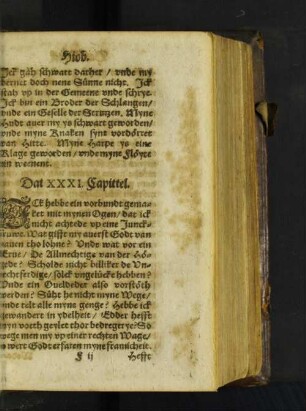 Hiob.
Ick gah schwart daher / vnde my
bernet doch nene Sünne nicht. Ick
stah vp in der Gemeene vnde schrye.
Ick bin ein Broder der Schlangen /
vnde ein Geselle der Strutzen. Myne
Hudt auer my ys schwart geworden /
vnde myne Knaken synt vordörret
van Hitte. Myne Harpe ys eine
Klage geworden / vnde myne Flöyte
ein wenent.
Dat XXXI. Capittel.
ICk hebbe ein vorbundt gema-
ket mit mynen Ogen / dat ick
nicht achtede vp eine Junck-
fruwe. Wat gifft my auerst Godt van
bauen tho lohne? Vnde wat vor ein
Erue / De Allmechtige van der Hö-
gede? Scholde nicht billiker de Vn-
rechtferdige / solck vngelücke hebben?
Vnde ein Oueldeder also vorstöth
werden? Süht he nicht myne Wege /
vnde telt alle myne genge? Hebbe ick
gewandert in ydelheit / Edder hefft
myn voeth geylet thor bedregerye? So
wege men my vp einer rechten Wage /
so wert Godt erfaren myne framicheit.
F ij Hefft